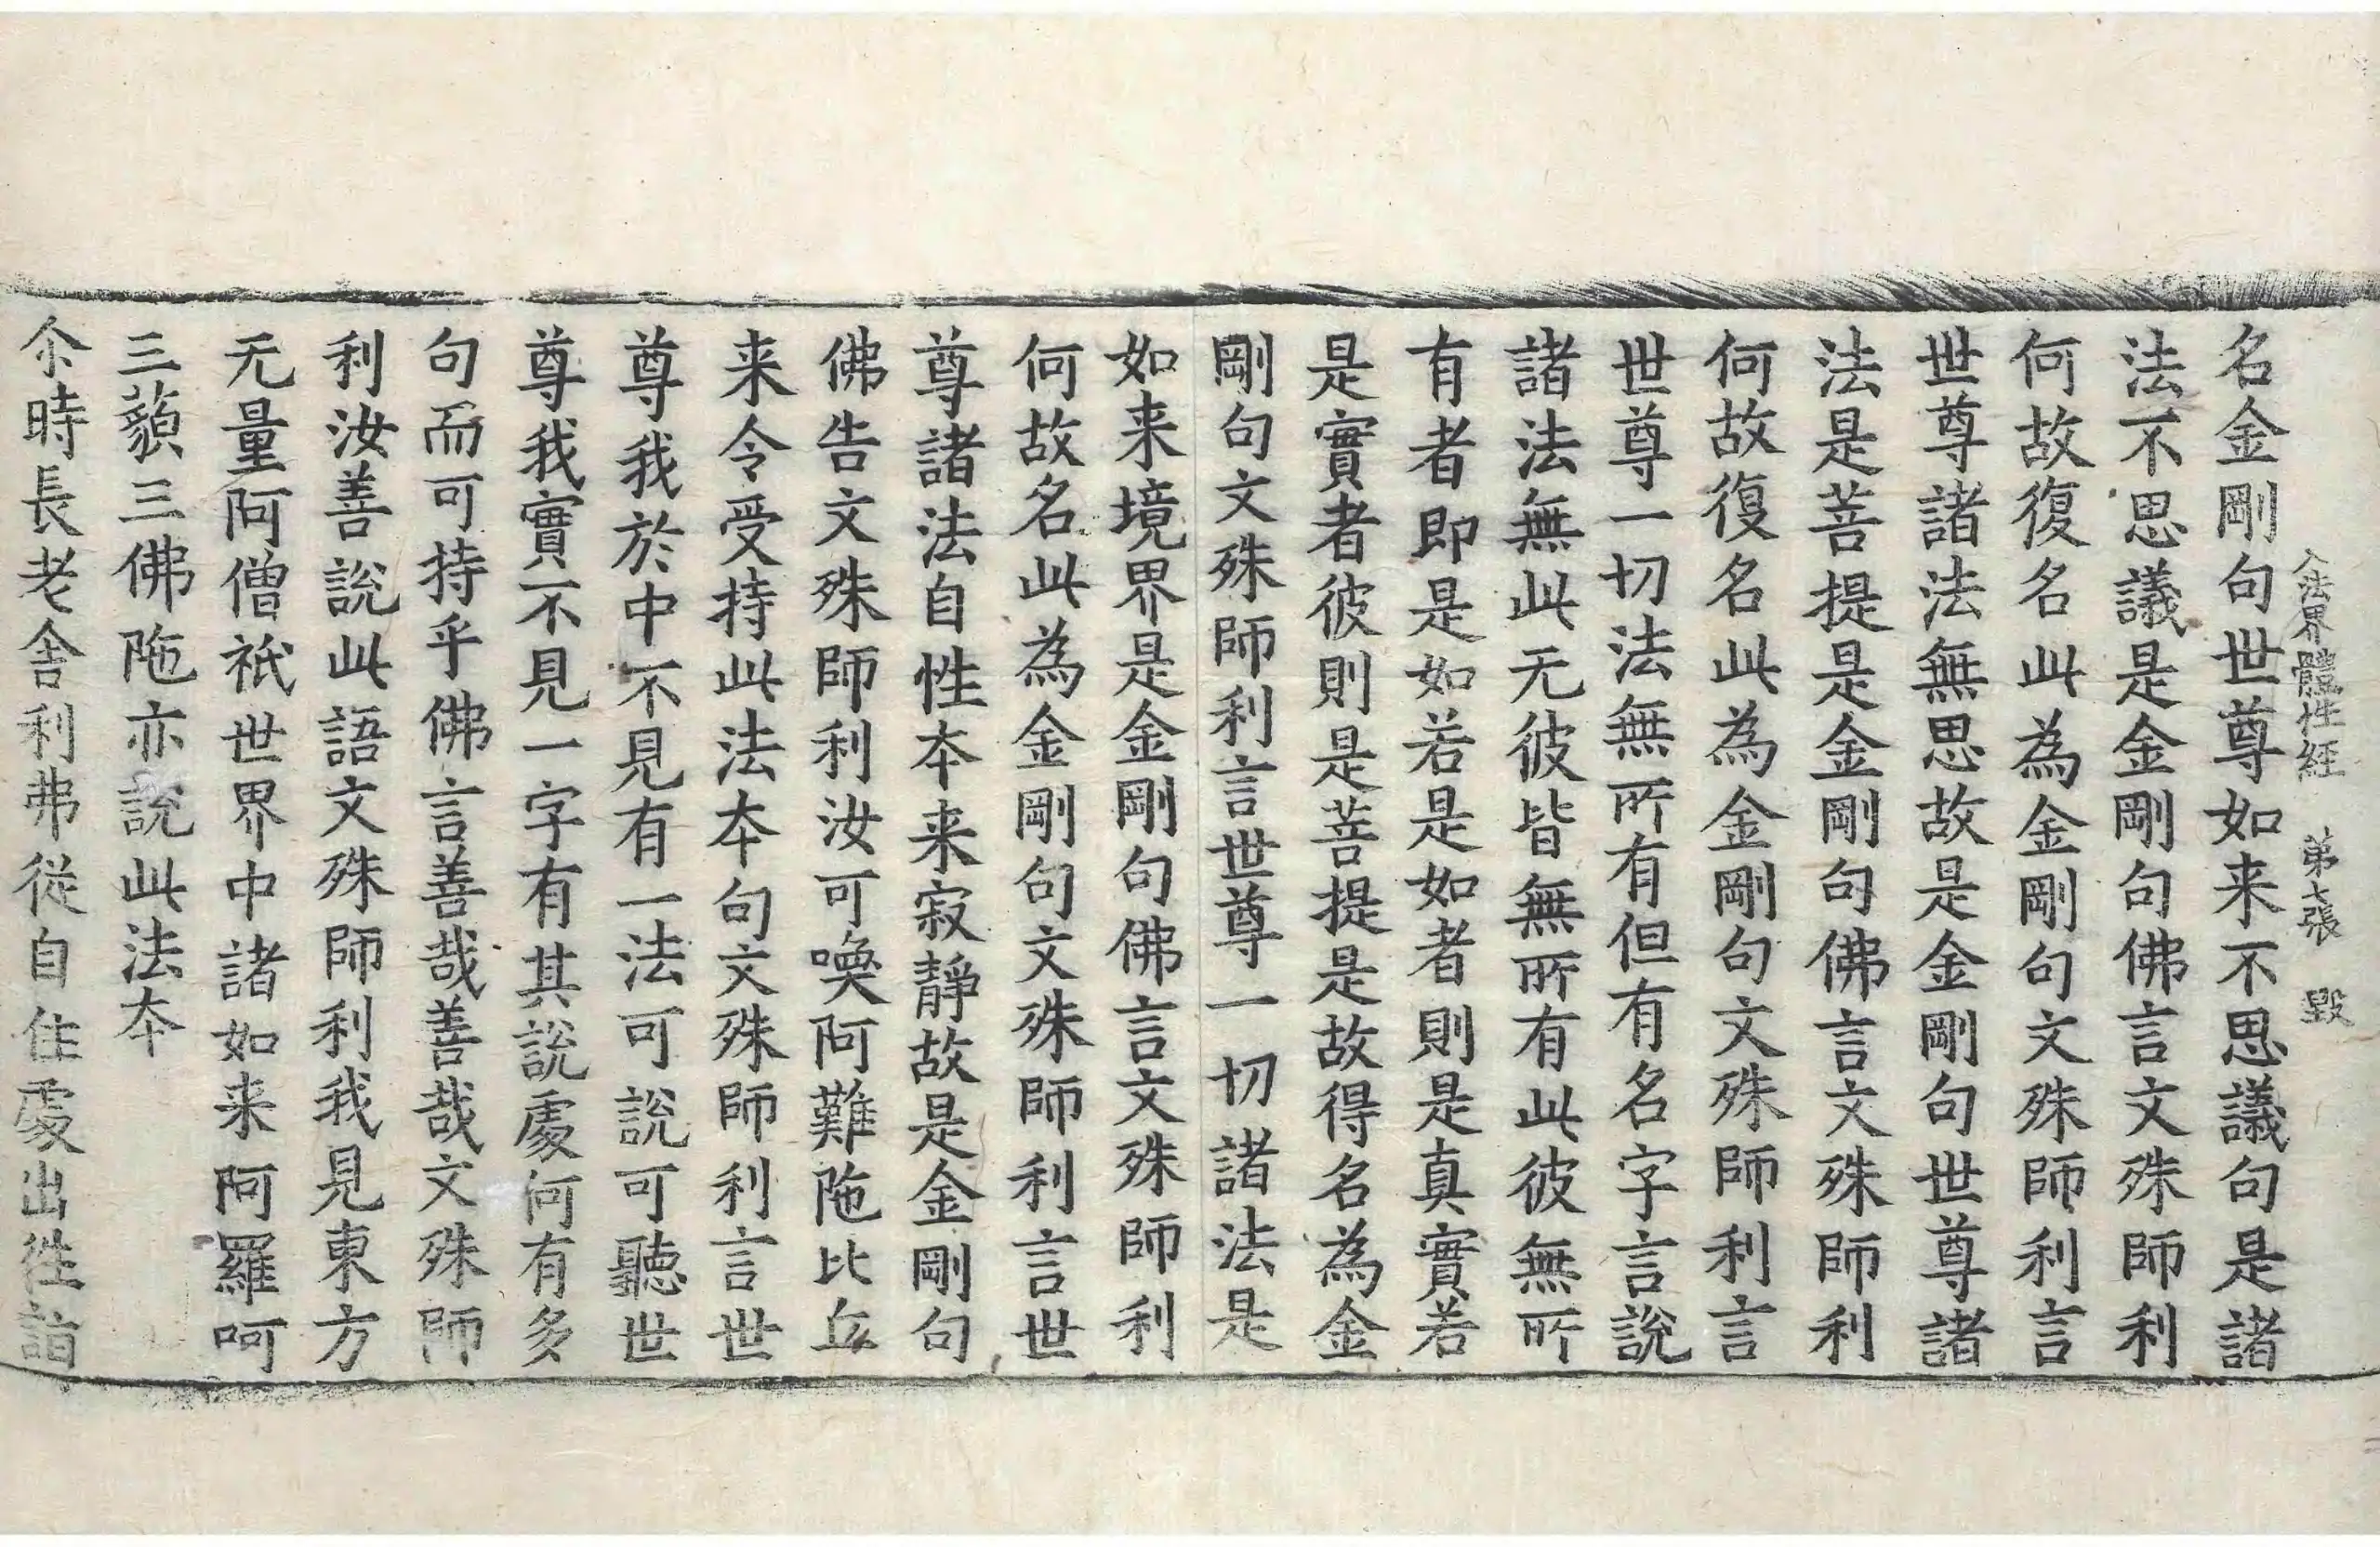 入法界體性經 苐七張 毀
名金剛句世尊如来不思議句是諸
法不思議是金剛句佛言文殊師利
何故復名此為金剛句文殊師利言
世尊諸法無思故是金剛句世尊諸
法是菩提是金剛句佛言文殊師利
何故復名此為金剛句文殊師利言
世尊一切法無所有但有名字言說
諸法無此无彼皆無所有此彼無所
有者即是如若是如者則是真實若
是實者彼則是菩提是故得名為金
剛句文殊師利言世尊一切諸法是
如来境界是金剛句佛言文殊師利
何故名此為金剛句文殊師利言世
尊諸法自性夲来寂靜故是金剛句
佛告文殊師利汝可喚阿難陁比丘
来令受持此法夲句文殊師利言世
尊我於中不見有一法可說可聽世
尊我實不見一字有其說處何有多
句而可持乎佛言善哉善哉文殊師
利汝善說此語文殊師利我見東方
无量阿僧祇世界中諸如来阿羅呵
三藐三佛陁亦說此法夲
尒時長老舎利弗從自住處出往詣